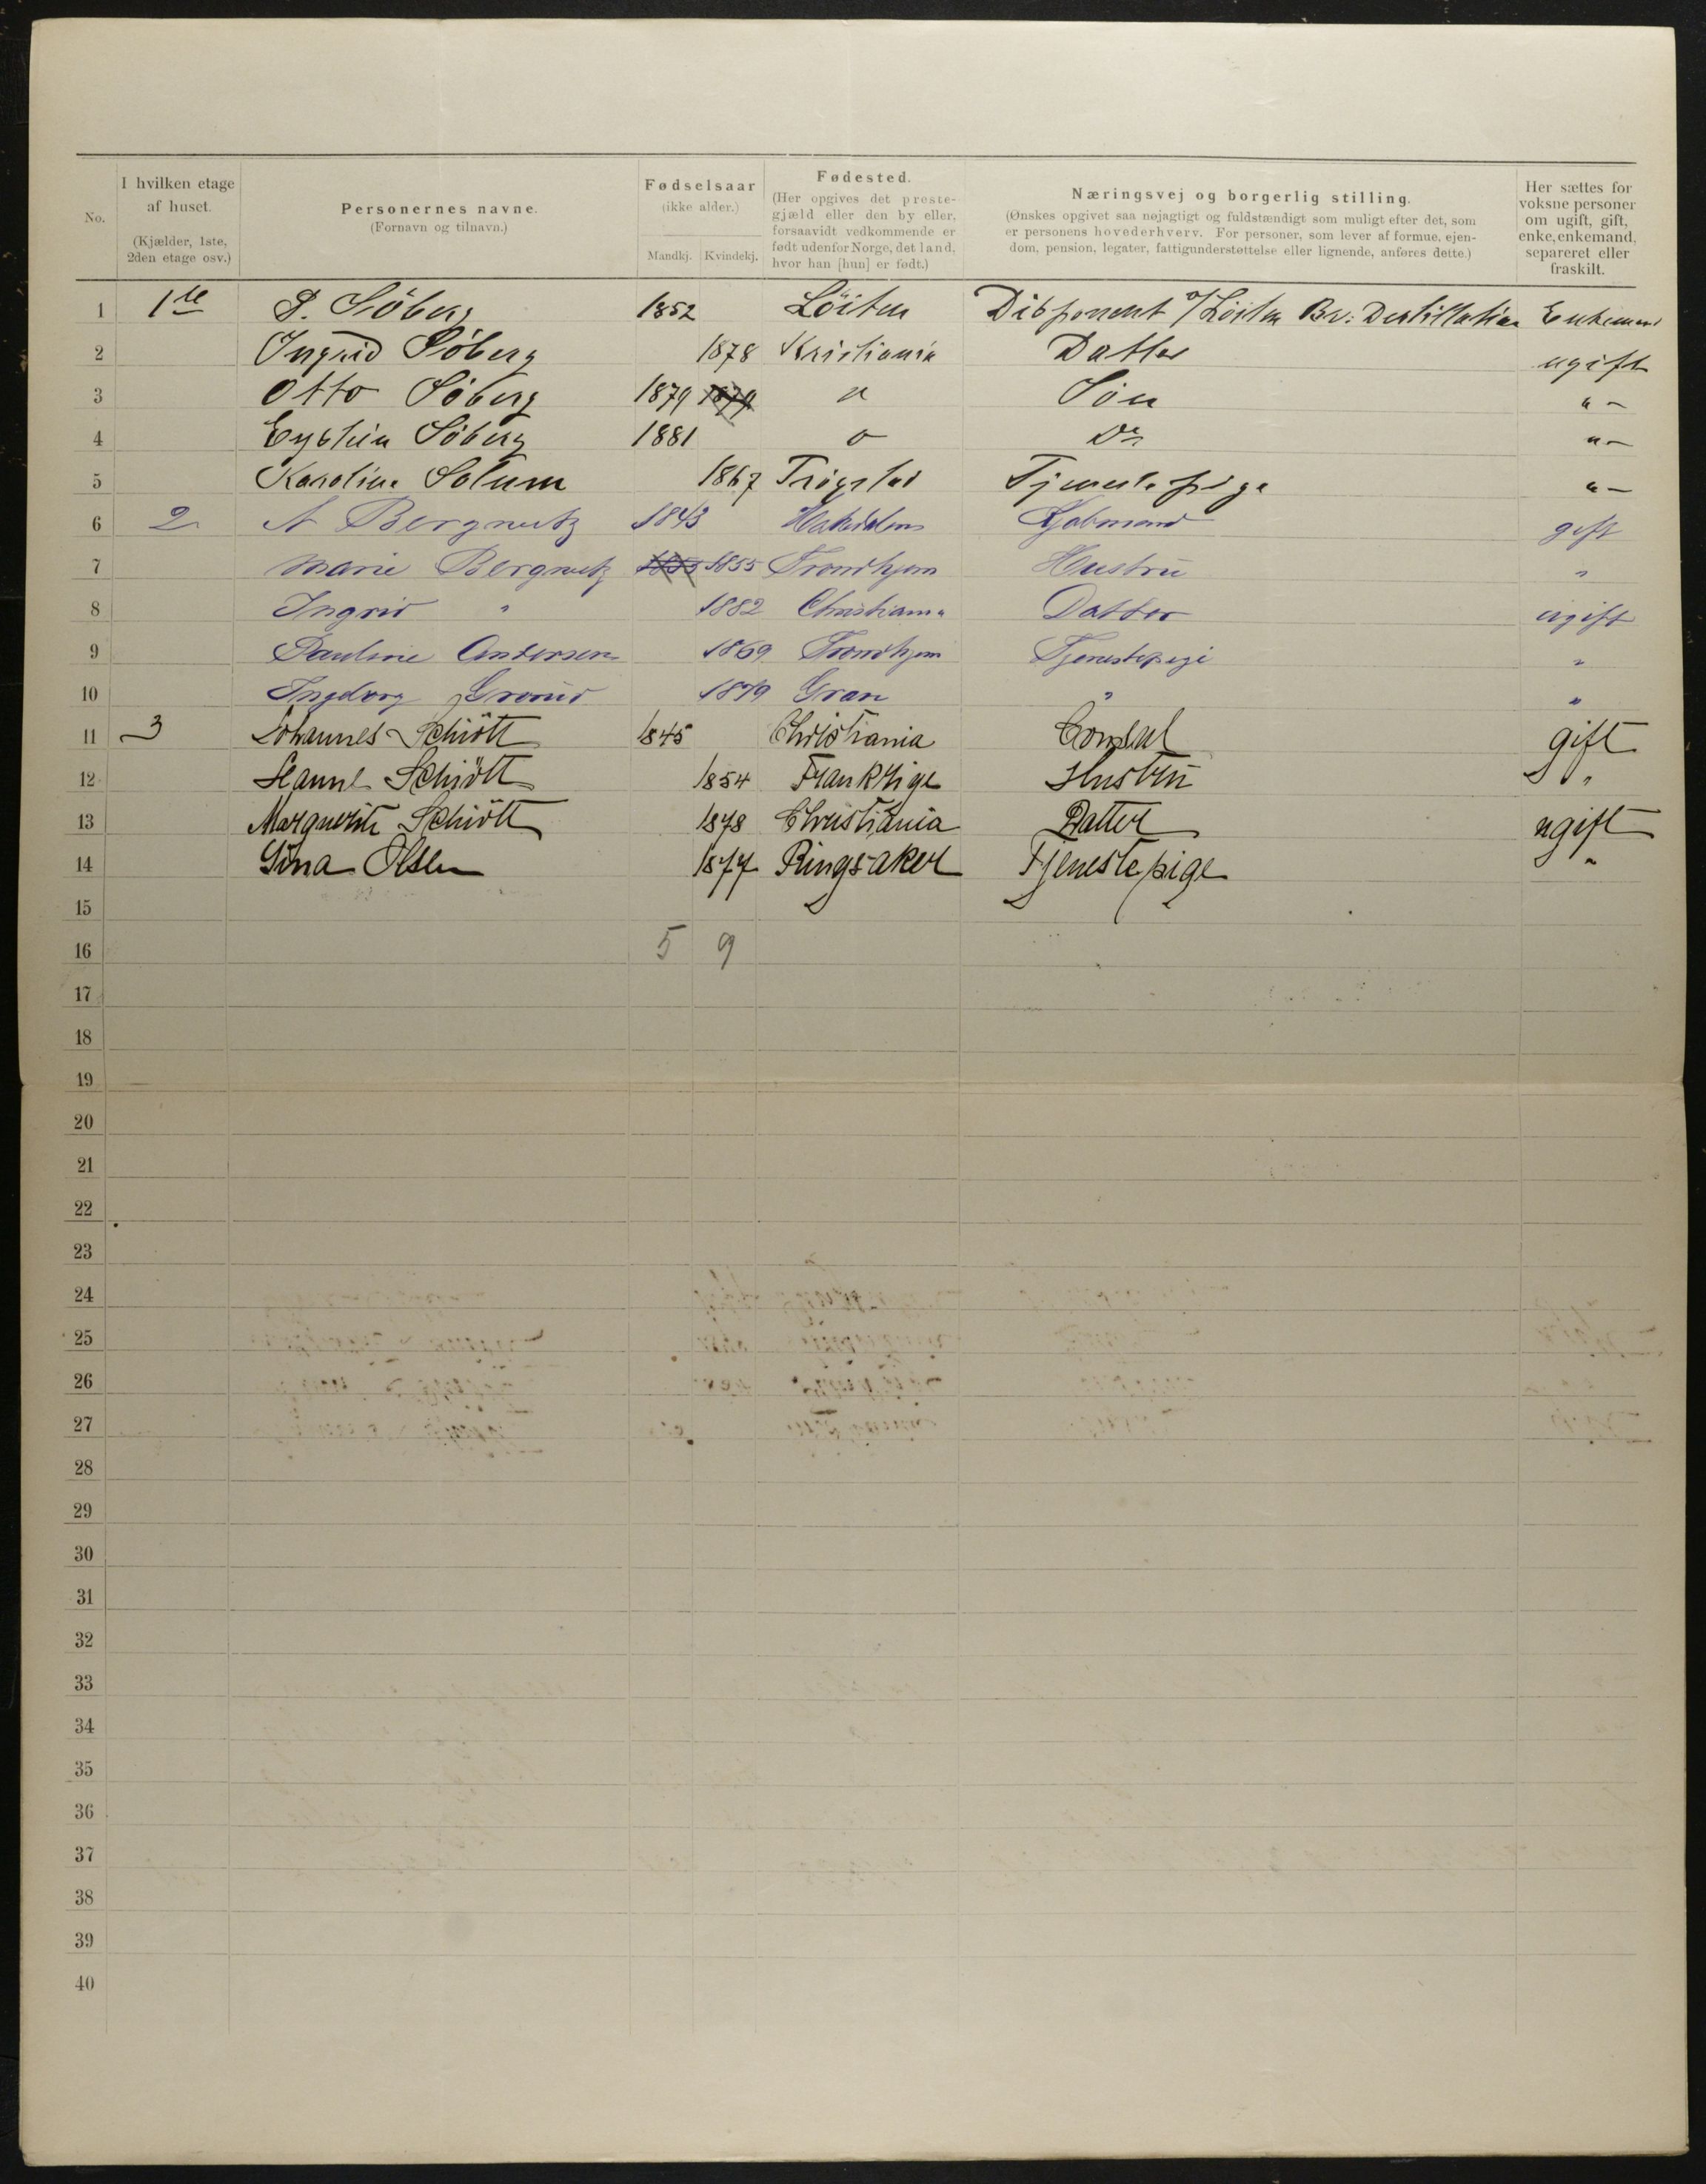 No.
I hvilken etage af huset.
(Kjælder, 1ste, 2den etage osv.)
Personernes navne.
(Fornavn og tilnavn.)
Fødselsaar
(ikke alder.)
Mandkj. Kvindekj.
Fødested.
(Her opgives det prestegjæld eller den by eller, forsaavidt vedkommende er født udenfor Norge, det land, hvor han [hun] er født.)
Næringsvej og borgerlig stilling.
(Ønskes opgivet saa nøjagtigt og fuldstændigt som muligt efter det, som er personens hovederhverv. For personer, som lever af formue, ejendom, pension, legater, fattigunderstøttelse eller lignende, anføres dette.)
Her sættes for voksne personer om ugift, gift, enke, enkemand, separeret eller fraskilt.
1 1ste Söberg 1852 Löiten Disponent Löiten Br: Destillation Enkemand
2 Ingrid Söberg 1878 Kristiania Datter ugift
3 Otto Söberg 1879 1879 " Søn " -
4 Eystein Söberg 1881 " Do " -
5 Karoline Solum 1867 Trögstad Tjenestepige " -
6 2 A Bergnutz 1843 Kjøbmand gift
7 Marie Bergnutz 1855 1855 Trondhjem Hustru "
8 Ingrid " 1882 Christiania Datter ugift
9 Pauline Andersen 1869 Trondhjem Tjenestepige "
10 Ingeborg 1879 Gran " "
11 3 Johannes Schiött 1845 Christiania Consul gift
12 Hanne Schiött 1854 Frankrige Hustru "
13 Marguerite Schiött 1878 Christiania Datter ugift
14 Gina Olsen 1877 Ringsaker Tjenestepige "
15
16 5 9
17
18
19
20
21
22
23
24
25
26
27
28
29
30
31
32
33
34
35
36
37
38
39
40